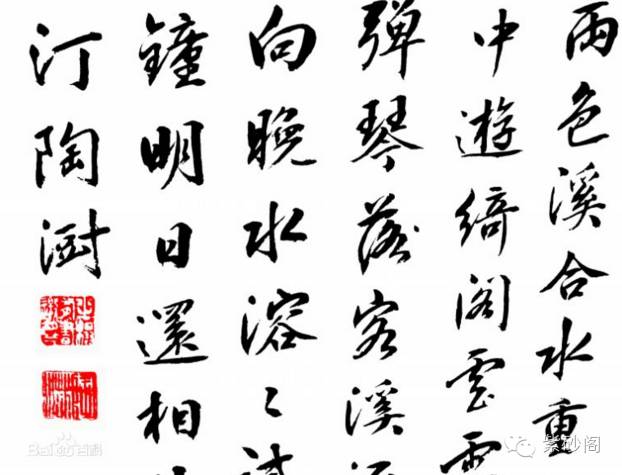 雨色溪合水重
中遊綺閣雲
彈琴落客溪
向晚水溶〻
鐘明日還相
汀陶澍
Bai百科
紫砂阁